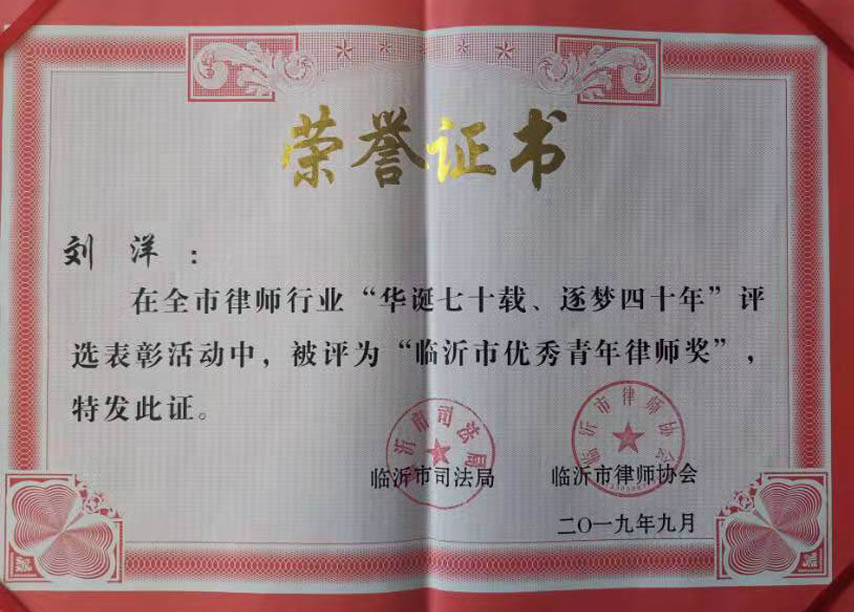 荣誉证书
刘 洋：
在全市律师行业“华诞七十载、逐梦四十年”评
选表彰活动中，被评为“临沂市优秀青年律师奖”，
特发此证。
临沂市司法局
临沂市律师协会
临沂市司法局 临沂市律师协会
二〇一九年九月